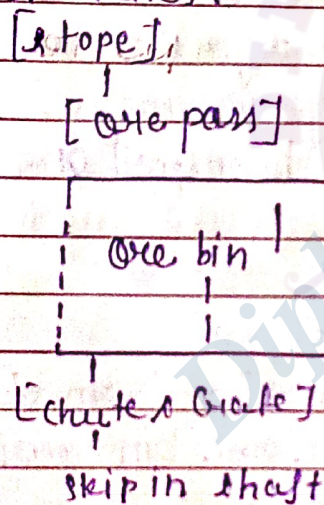 [stope],
[ore pass]
ore bin
[chute & Gate]
skip in shaft
Dipl